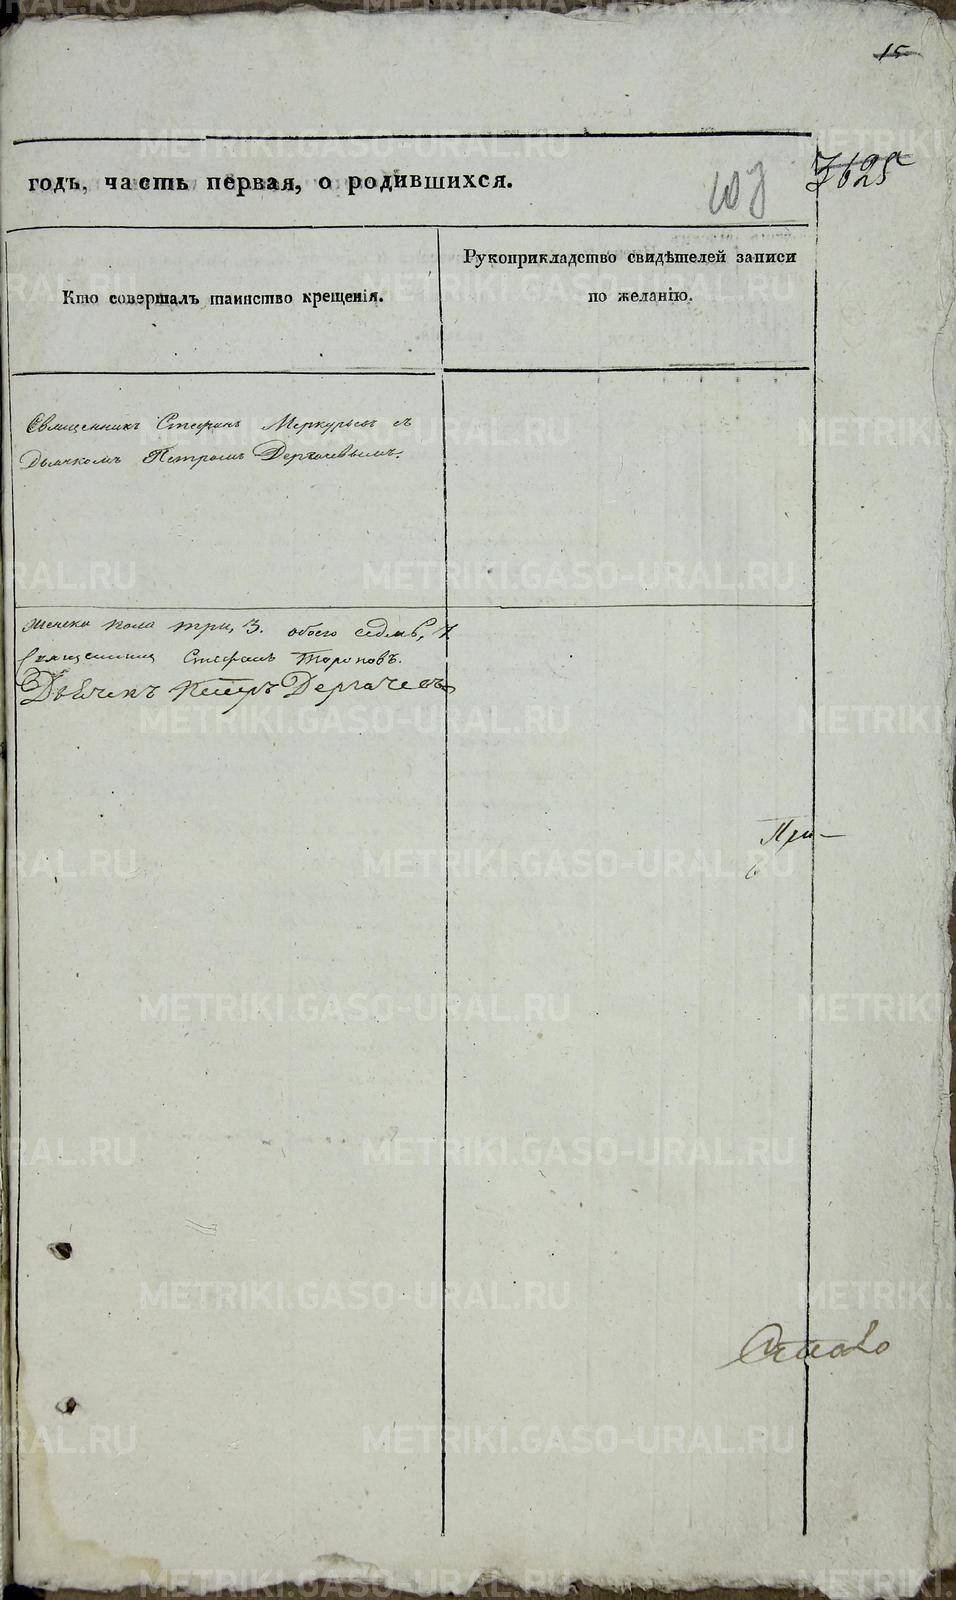 15
годъ, часть первая, о родившихся.
103
Кто совершалъ таинство крещенія.
Рукоприкладство свидѣтелей записи
по желанію.
Священникъ Стефанъ Меркурьевъ съ
Дьячкомъ Петромъ Дергачевымъ.
женска пола три, 3. обоего седмь, 7.
Священникъ Стефанъ Топоповъ.
Дьячекъ Петръ Дергачевъ
При-
METRIKI.GASO-URAL.RU